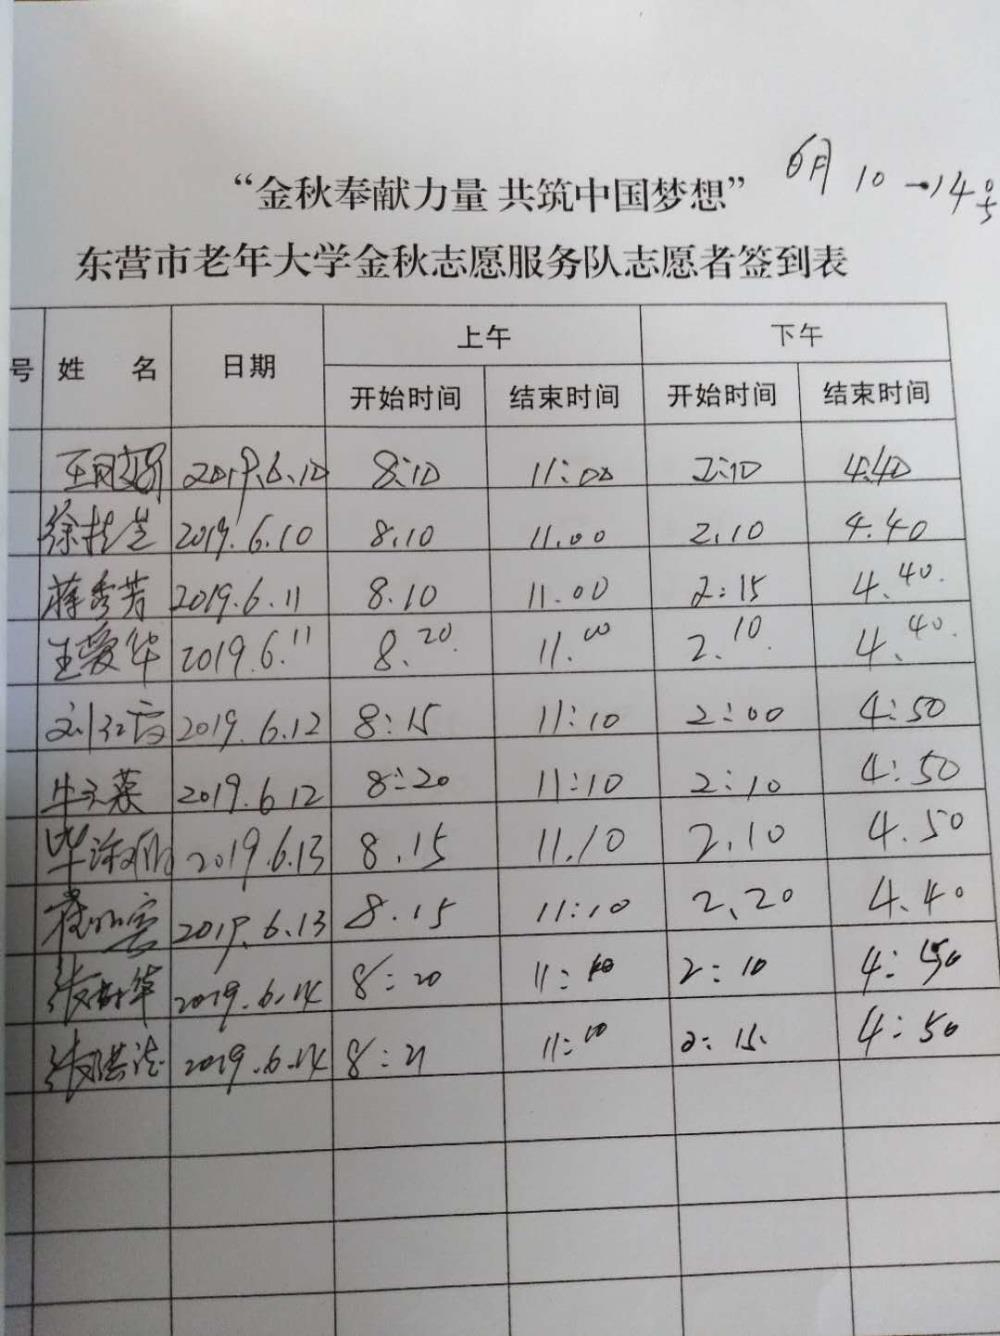 6月10—14号
“金秋奉献力量 共筑中国梦想”
东营市老年大学金秋志愿服务队志愿者签到表
号 姓 名 日期 上午 下午
开始时间 结束时间 开始时间 结束时间
2019.6.10 8:10 11:00 2:10 4:40
徐桂兰 2019.6.10 8.10 11.00 2.10 4.40
蒋秀芳 2019.6.11 8.10 11.00 2:15 4.40.
王爱华 2019.6.11 8.20. 11.00 2.10. 4.40.
刘红霞 2019.6.12 8:15 11:10 2:00 4:50
牛 2019.6.12 8:20 11:10 2:10 4:50
毕 2019.6.13 8.15 11.10 2.10 4.50
2019.6.13 8.15 11:10 2.20 4.40
张树华 2019.6.14 8:20 11: 2:10 4:50
张洪 2019.6.14 8:21 11:00 2:15. 4:50